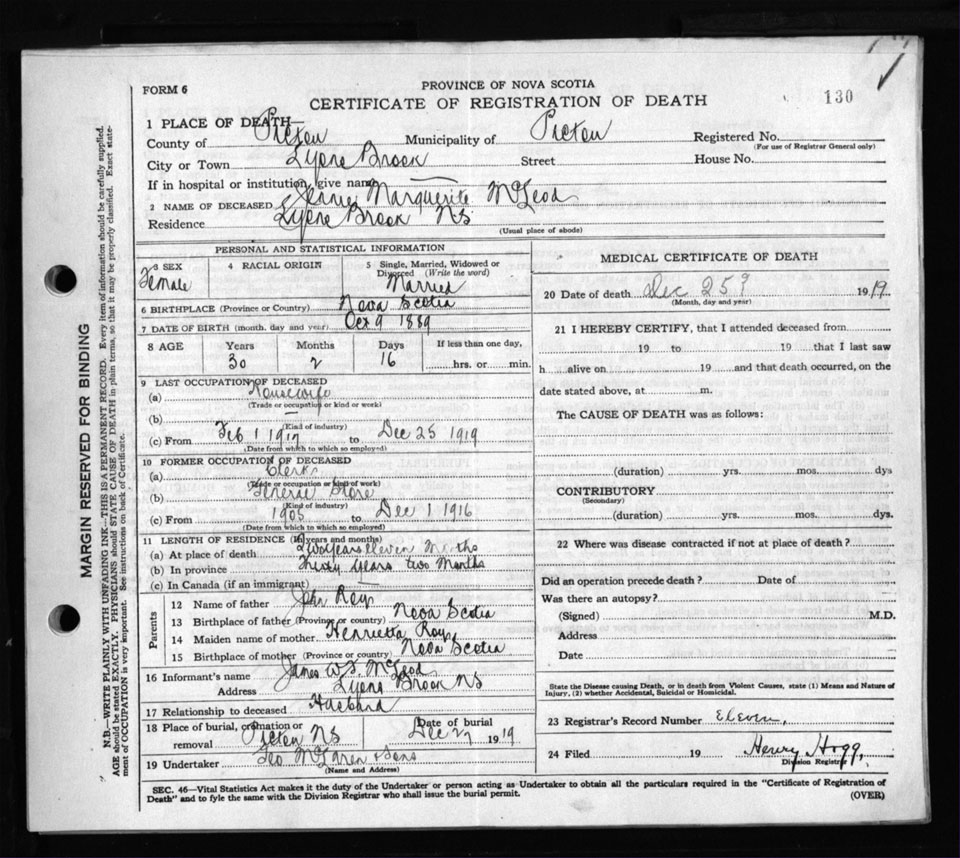 FORM 6
PROVINCE OF NOVA SCOTIA
CERTIFICATE OF REGISTRATION OF DEATH
130
1 PLACE OF DEATH—
County of Pictou Municipality of Pictou Registered No.
(For use of Registrar General only)
City or Town Lyons Brook Street House No.
If in hospital or institution, give name
2 NAME OF DECEASED Jennie Marguerite McLeod
Residence Lyons Brook NS
(Usual place of abode)
PERSONAL AND STATISTICAL INFORMATION
3 SEX Female
4 RACIAL ORIGIN
5 Single, Married, Widowed or Divorced (Write the word) Married
6 BIRTHPLACE (Province or Country) Nova Scotia
7 DATE OF BIRTH (month, day and year) Oct 9 1889
8 AGE Years Months Days If less than one day,
30 2 16 hrs. or min.
9 LAST OCCUPATION OF DECEASED
(a) Housewife
(Trade or occupation or kind of work)
(b)
(Kind of industry)
(c) From Feb 1 1917 to Dec 25 1919
(Date from which to which so employed)
10 FORMER OCCUPATION OF DECEASED
(a) Clerk
(Trade or occupation or kind of work)
(b) Store
(Kind of industry)
(c) From 1905 to Dec 1 1916
(Date from which to which so employed)
11 LENGTH OF RESIDENCE (in years and months)
(a) At place of death Two years eleven Months
(b) In province Thirty years two Months
(c) In Canada (if an immigrant)
Parents
12 Name of father John Roy
13 Birthplace of father (Province or country) Nova Scotia
14 Maiden name of mother Henrietta Roy
15 Birthplace of mother (Province or country) Nova Scotia
16 Informant's name James W. McLeod
Address Lyons Brook NS
17 Relationship to deceased Husband
18 Place of burial, cremation or removal Pictou NS Date of burial Dec 27 1919
19 Undertaker Geo McLaren & Sons
(Name and Address)
MEDICAL CERTIFICATE OF DEATH
20 Date of death Dec 25 1919
(Month, day and year)
21 I HEREBY CERTIFY, that I attended deceased from
19 to 19 that I last saw
h alive on 19 and that death occurred, on the
date stated above, at m.
The CAUSE OF DEATH was as follows:
(duration) yrs. mos. dys
CONTRIBUTORY
(Secondary)
(duration) yrs. mos. dys.
22 Where was disease contracted if not at place of death?
Did an operation precede death? Date of
Was there an autopsy?
(Signed) M.D.
Address
Date
State the Disease causing Death, or in death from Violent Causes, state (1) Means and Nature of
Injury, (2) whether Accidental, Suicidal or Homicidal.
23 Registrar's Record Number Eleven,
24 Filed 19 Henry Hogg,
Division Registrar
SEC. 46—Vital Statistics Act makes it the duty of the Undertaker or person acting as Undertaker to obtain all the particulars required in the "Certificate of Registration of
Death" and to fyle the same with the Division Registrar who shall issue the burial permit.
(OVER)
MARGIN RESERVED FOR BINDING
N.B.—WRITE PLAINLY WITH UNFADING INK—THIS IS A PERMANENT RECORD. Every item of information should be carefully supplied.
AGE should be stated EXACTLY. PHYSICIANS should STATE CAUSE OF DEATH in plain terms, so that it may be properly classified. Exact state-
ment of OCCUPATION is very important. See instructions on back of Certificate.